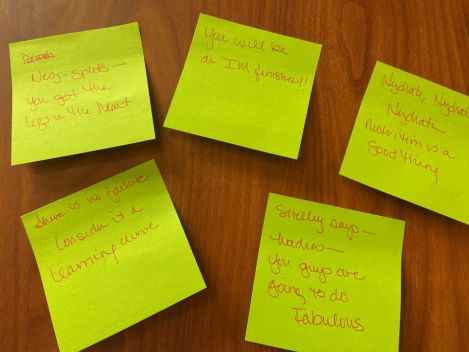 Neg-Splits -
you got the
legs & the heart
You will be
an IM finisher!!
Hydrate, Hydrate
Hydrate
Nutrition is a
Good thing
There is no failure
Consider it a
learning curve
Shelley says -
-
You guys are
going to do
Fabulous